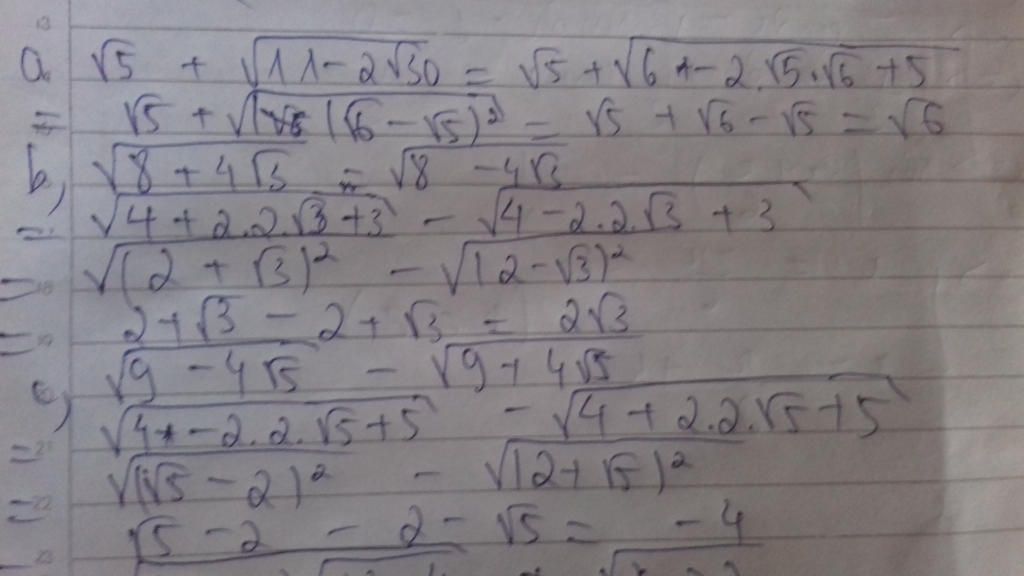 a, √5 + √(11 - 2√30) = √5 + √(6 - 2.√5.√6 + 5)
= √5 + √((√6 - √5)²) = √5 + √6 - √5 = √6
b, √(8 + 4√3) = √(8 - 4√3)
= √(4 + 2.2.√3 + 3) - √(4 - 2.2.√3 + 3)
= √((2 + √3)²) - √((2 - √3)²)
= 2 + √3 - 2 + √3 = 2√3
c, √(9 - 4√5) - √(9 + 4√5)
= √(4 - 2.2.√5 + 5) - √(4 + 2.2.√5 + 5)
= √((√5 - 2)²) - √((2 + √5)²)
= √5 - 2 - 2 - √5 = - 4